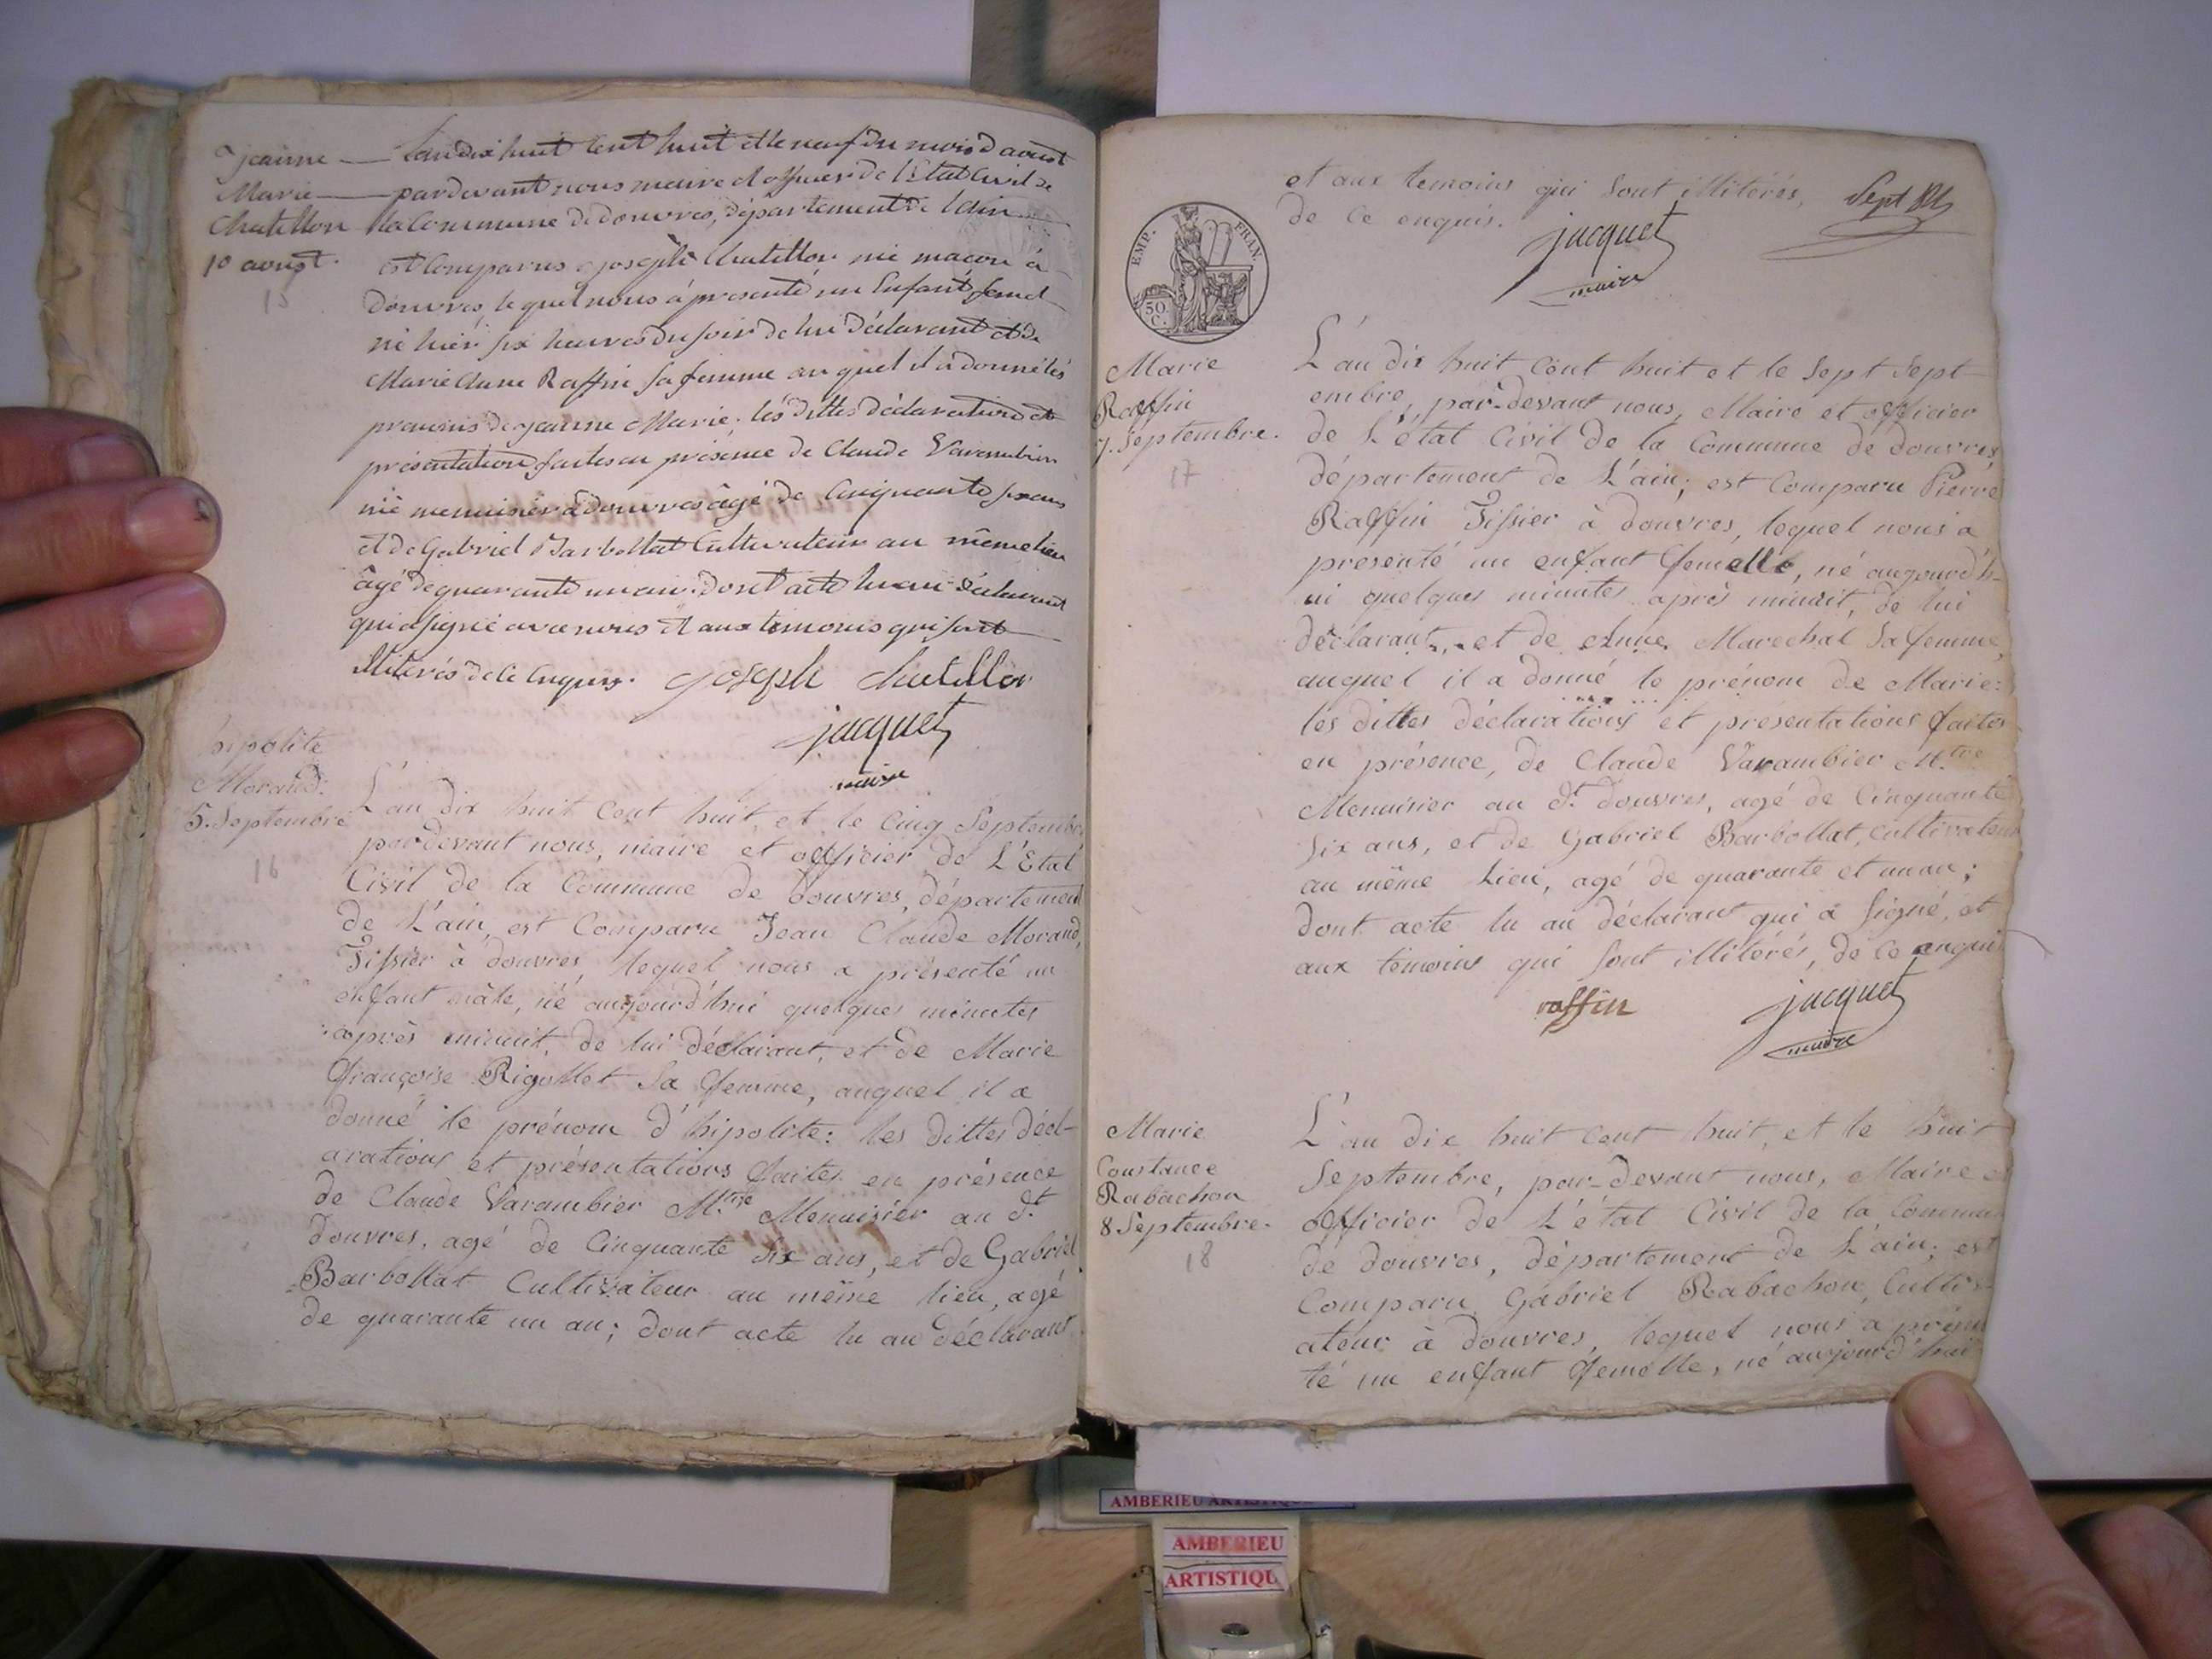 jeanne
Marie
Chatillon
10 aoust.
15
Lan dix huit Cent huit et le neuf du mois d aoust
pardevant nous maire et officier de l'Etat Civil de
la Commune de douvres, département de l'ain
est Comparus joseph Chatillon me macon à
douvres, le quel nous à presenté un Enfant femel
né hier six heures du soir de lui déclarant et de
Marie Anne Raffin sa femme au quel il à donné les
prenoms de jeanne Marie. les dittes déclarations et
présentation faites en présence de Claude Varambier
me menuisier à douvres âgé de Cinquante six ans
et de Gabriel Barbollat Cultivateur au même lieu
âgé de quarante un an. dont acte lu au déclarant
qui a signé avec nous et aux temoins qui sont
illiterés de ce enquis. joseph Chatillon
jacquet
maire
hipolite
Morand.
5. Septembre
16
L'an dix huit Cent huit, et le Cinq Septembre
pardevant nous, maire et officier de L'Etat
Civil de la Commune de Douvres, département
de L'ain, est Comparu Jean Claude Morand,
Tissier à douvres, lequel nous a présenté un
enfant mâle, né aujourd'hui quelques minutes
après minuit, de lui déclarant, et de Marie
françoise Rigollet Sa femme, auquel il a
donné le prénom d'hipolite: les dittes décl-
arations et présentations faites en présence
de Claude Varambier M.tre Menuisier au d.t
Douvres, agé de Cinquante six ans, et de Gabriel
Barbollat Cultivateur au même lieu, agé
de quarante un an; dont acte lu au déclarant
et aux temoins qui sont illitérés,
de Ce enquis.
jacquet
maire
Sept
EMP. FRAN.
50 C.
Marie
Raffin
7. Septembre.
17
L'an dix huit Cent huit et le Sept Sept-
embre, par-devant nous, Maire et officier
de L'état Civil de la Commune de douvres,
département de L'ain; est Comparu Pierre
Raffin Tissier à douvres, lequel nous a
presenté un enfant femelle, né aujourd'h-
ui quelques minutes après minuit, de lui
déclarant, et de Anne Marechal Sa femme,
auquel il a donné le prénom de Marie:
les dittes déclarations et présentations faites
en présence, de Claude Varambier M.tre
Menuisier au d.t douvres, agé de Cinquante
six ans, et de Gabriel Barbollat, Cultivateur
au même Lieu, agé de quarante et un an;
dont acte lu au déclarant qui a signé, et
aux temoins qui sont illitérés, de Ce enquis
raffin
jacquet
maire
Marie
Constance
Rabachon
8 Septembre.
18
L'an dix huit Cent huit, et le huit
Septembre, par-devant nous, Maire et
officier de L'état Civil de la Commune
de douvres, département de L'ain; est
Comparu Gabriel Rabachon, Cultiv-
ateur à douvres, lequel nous a présen
té un enfant femelle, né aujourd'hui
AMBERIEU ARTISTIQUE
AMBERIEU
ARTISTIQU